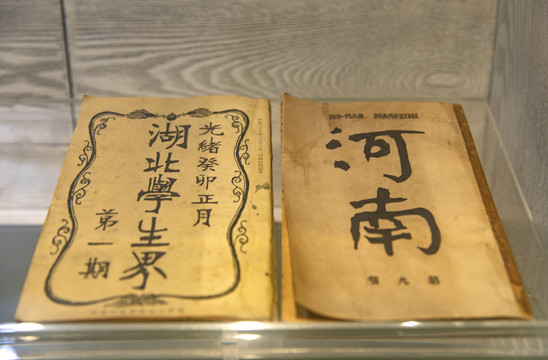 光緒癸卯正月
湖北學生界
第一期
HO-NAN MAGAZINE
河南
第九號